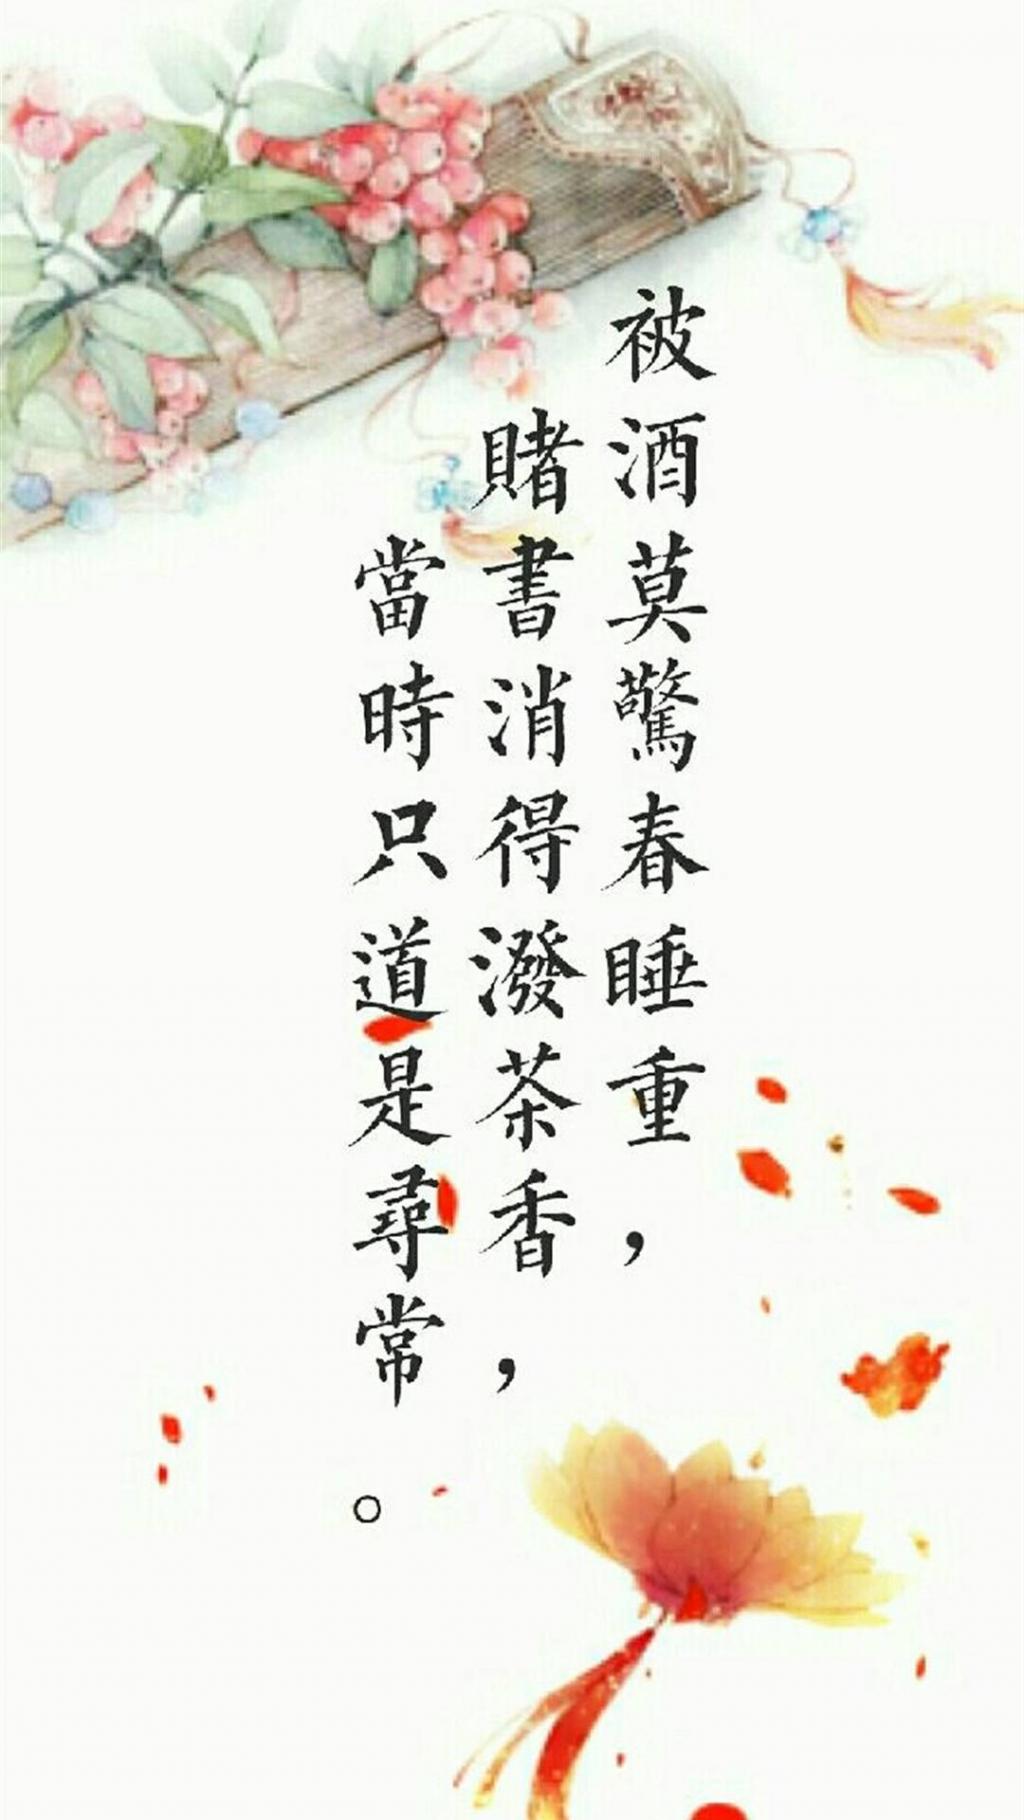 被酒莫驚春睡重，
賭書消得潑茶香，
當時只道是尋常。